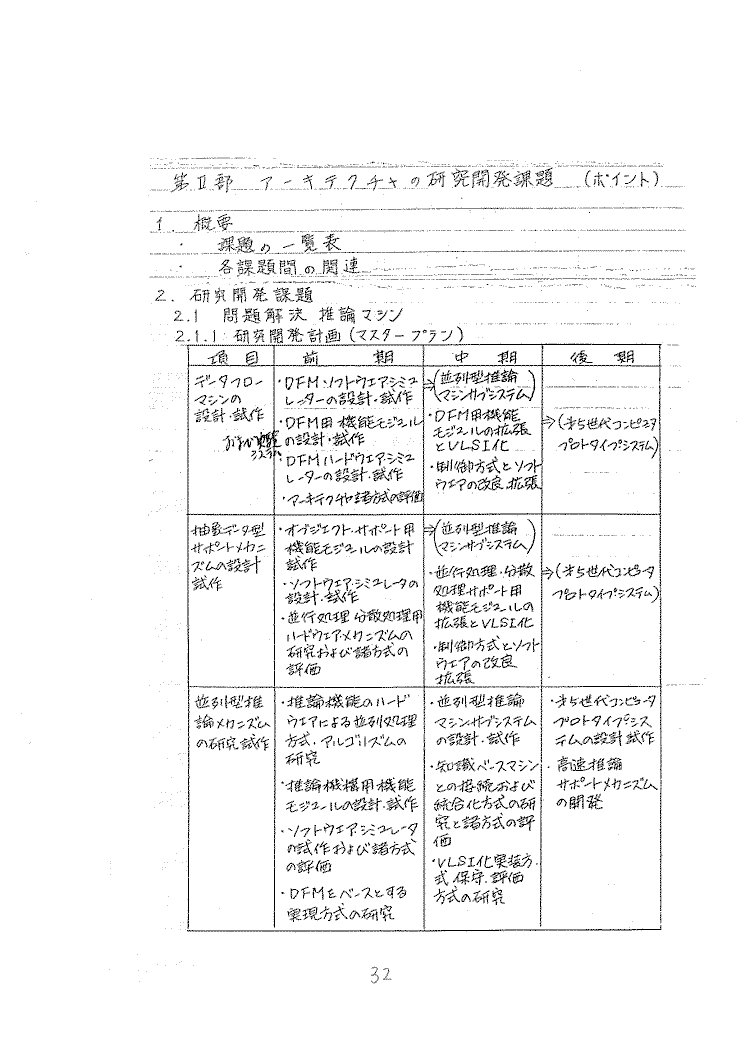 第Ⅱ部 アーキテクチャの研究開発課題 (ポイント)
1. 概要
・ 課題の一覧表
・ 各課題間の関連
2. 研究開発課題
2.1 問題解決 推論マシン
2.1.1 研究開発計画(マスタープラン)
項目 前 期 中 期 後 期
データフロー
マシンの
設計・試作
および
システム
・DFMソフトウェアシミュ
レーターの設計・試作
・DFM用機能モジュール
の設計・試作
・DFMハードウェアシミュ
レーターの設計・試作
・アーキテクチャ諸方式の評価
⇒(並列型推論
マシンサブシステム)
・DFM用機能
モジュールの拡張
とVLSI化
・制御方式とソフト
ウェアの改良 拡張
⇒(才5世代コンピュータ
プロトタイプシステム)
抽象データ型
サポートメカニ
ズムの設計
試作
・オブジェクト・サポート用
機能モジュールの設計
試作
・ソフトウェア・シミュレータの
設計・試作
・並行処理 分散処理用
ハードウェアメカニズムの
研究および諸方式の
評価
⇒(並列型推論
マシンサブシステム)
・並行処理・分散
処理サポート用
機能モジュールの
拡張とVLSI化
・制御方式とソフト
ウェアの改良
拡張
⇒(才5世代コンピュータ
プロトタイプシステム)
並列型推
論メカニズム
の研究試作
・推論機能のハード
ウェアによる並列処理
方式・アルゴリズムの
研究
・推論機構用機能
モジュールの設計・試作
・ソフトウェアシミュレータ
の試作および諸方式
の評価
・DFMをベースとする
実現方式の研究
・並列型推論
マシンサブシステム
の設計・試作
・知識ベースマシン
との接続および
統合化方式の研
究と諸方式の評
価
・VLSI化実装方
式 保守・評価
方式の研究
・才5世代コンピュータ
プロトタイプシス
テムの設計試作
・高速推論
サポートメカニズム
の開発
32